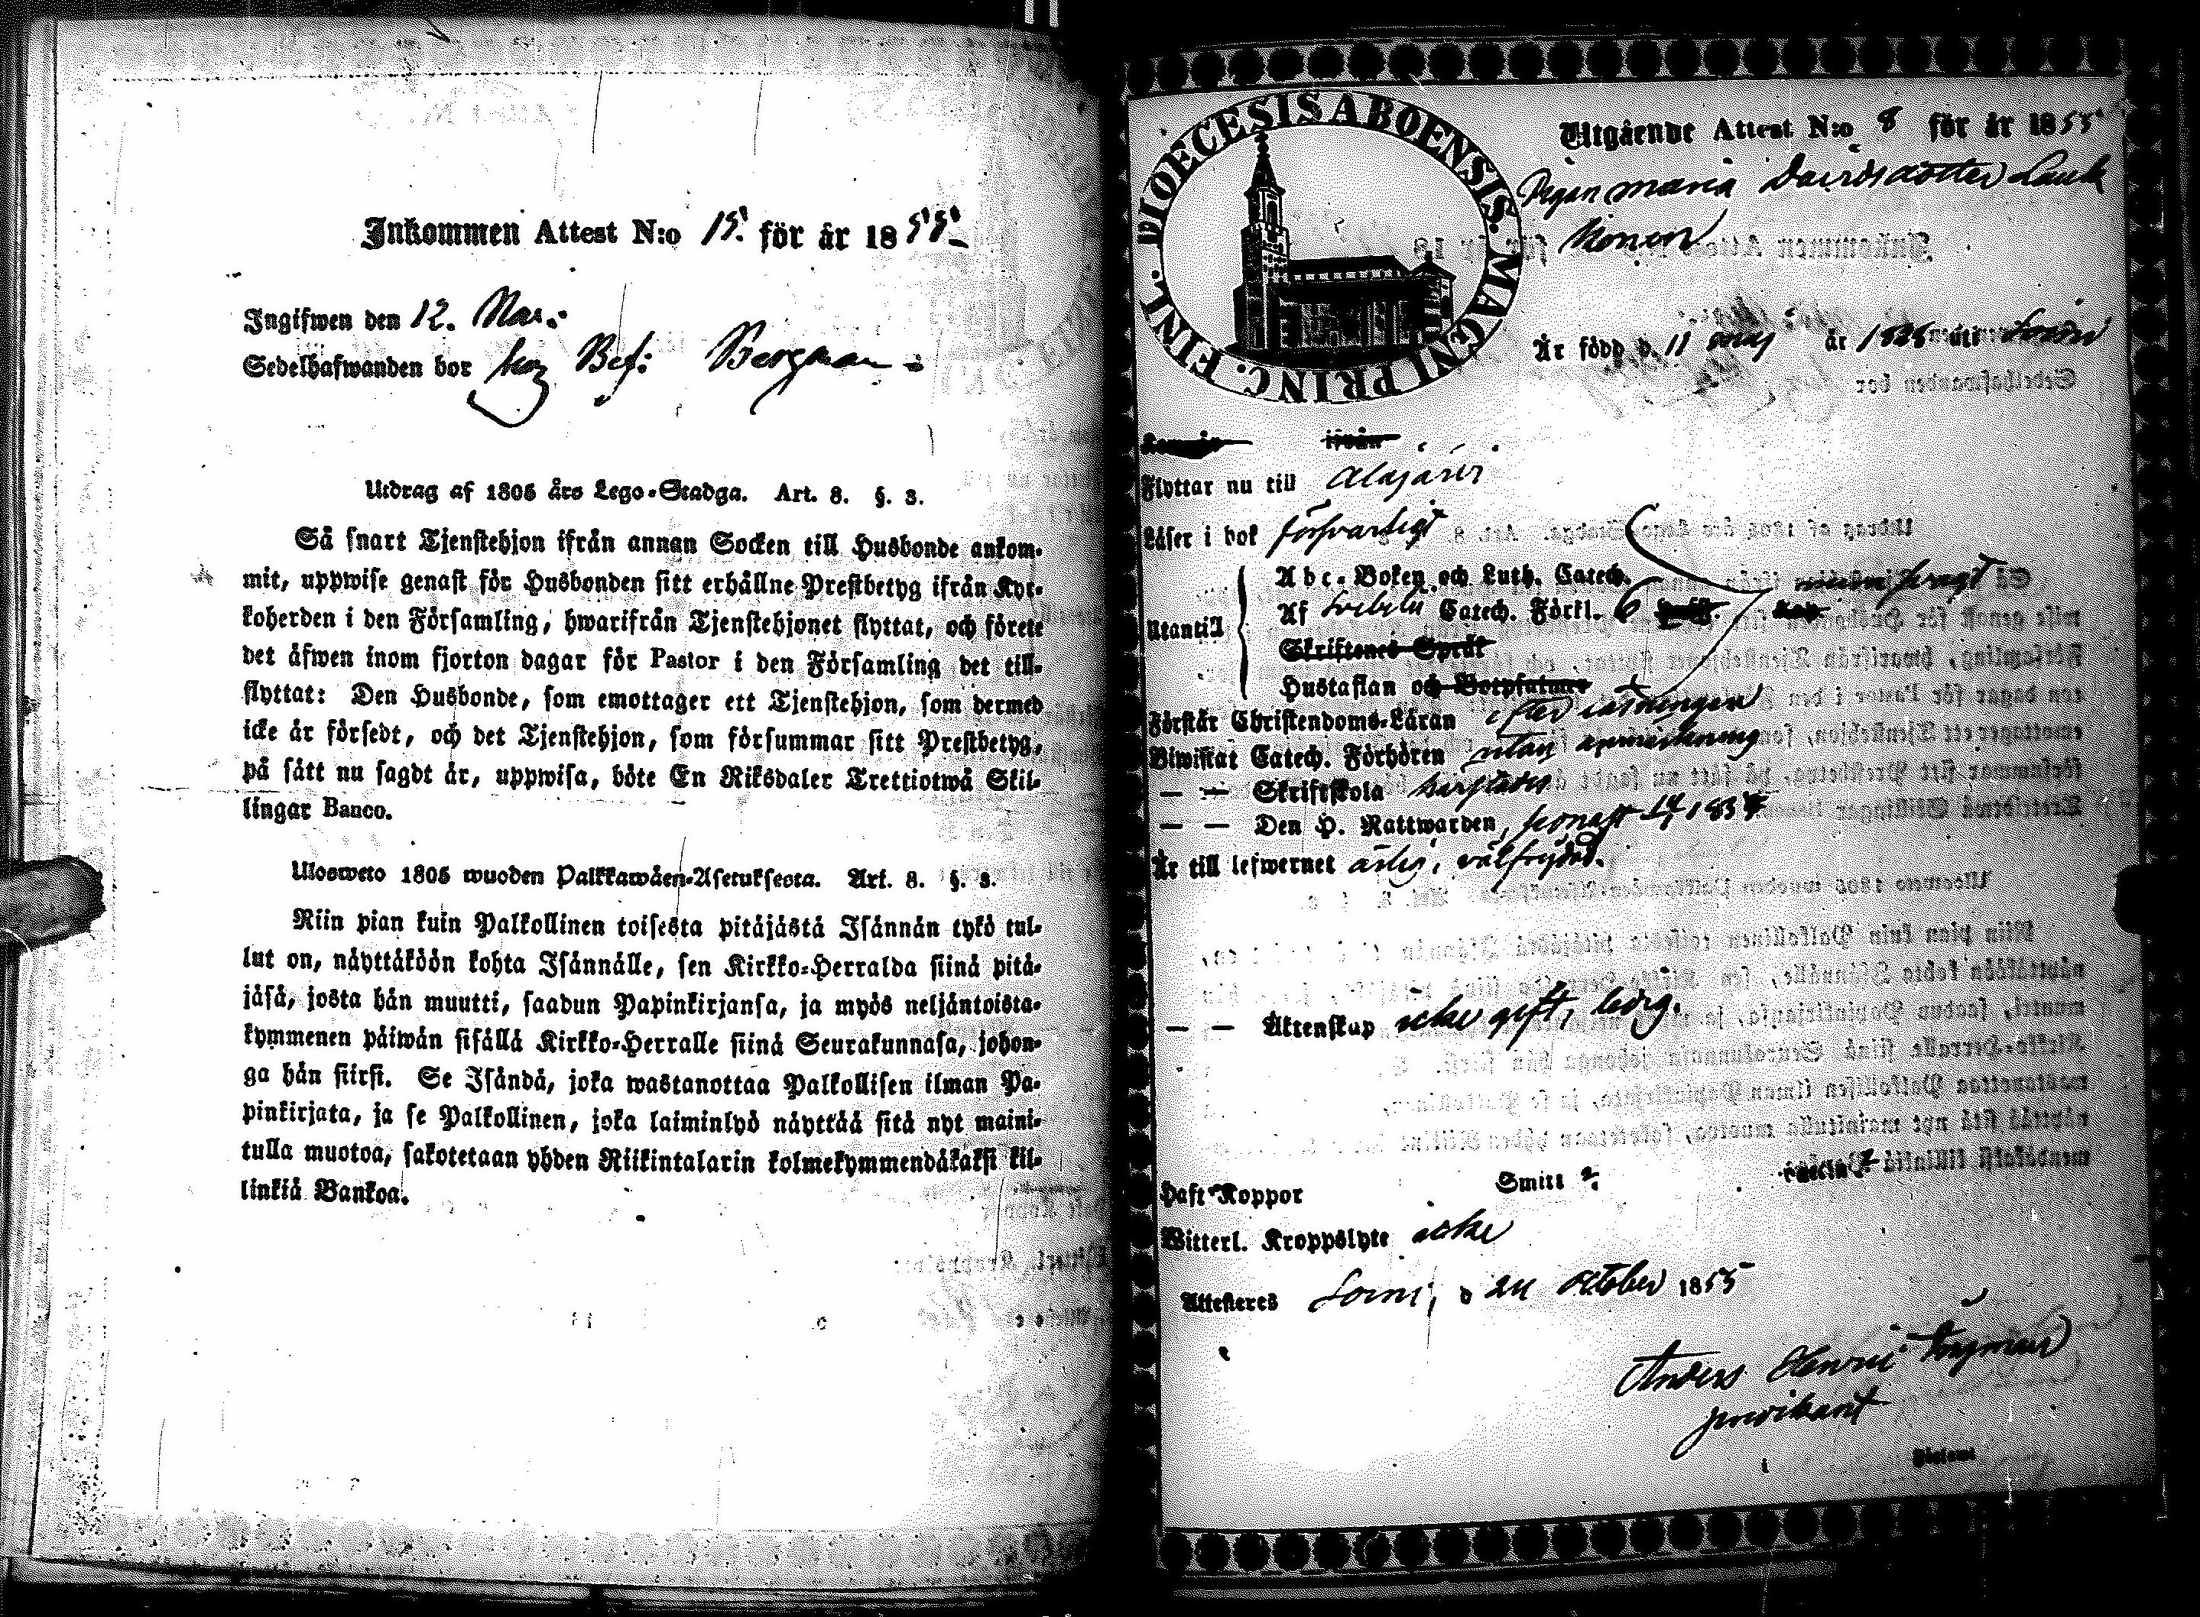 Inkommen Attest N:o 15. för år 1855
Ingifwen den 12. Nov.
Sedelhafwanden bor hos Bef: Bergman
Utdrag af 1805 års Lego-Stadga. Art. 8. §. 3.
Så snart Tjenstehjon ifrån annan Socken till Husbonde ankom-
mit, uppwise genast för Husbonden sitt erhållne Prestbetyg ifrån Kyr-
koherden i den Församling, hwarifrån Tjenstehjonet flyttat, och förete
det äfwen inom fjorton dagar för Pastor i den Församling det till-
flyttat: Den Husbonde, som emottager ett Tjenstehjon, som dermed
icke är försedt, och det Tjenstehjon, som försummar sitt Prestbetyg,
på sätt nu sagdt är, uppwisa, böte En Riksdaler Trettiotwå Skil-
lingar Banco.
Ulosweto 1805 wuoden Palkkawäen-Asetuksesta. Art. 8. §. 3.
Niin pian kuin Palkollinen toisesta pitäjästä Isännän tykö tul-
lut on, näyttäköön kohta Isännälle, sen Kirkko-Herralda siinä pitä-
jäsä, josta hän muutti, saadun Papinkirjansa, ja myös neljäntoista-
kymmenen päiwän sisällä Kirkko-Herralle siinä Seurakunnasa, johon-
ga hän siirsi. Se Isändä, joka wastanottaa Palkollisen ilman Pa-
pinkirjata, ja se Palkollinen, joka laiminlyö näyttää sitä nyt maini-
tulla muotoa, sakotetaan yhden Riikintalarin kolmekymmendäkaksi kil-
linkiä Bankoa.
DIOECESIS ABOENSIS. MAGNI PRINC. FINL.
Utgående Attest N:o 8 för år 1855
Pigan Maria Davidsdotter Lauk
konen
Är född d. 11 maj år 1828 uti Soini
ifrån
Flyttar nu till Alajärvi
Läser i bok försvarligt
Utantill
Abc-Boken och Luth. Catech.
Af Svebelii Catech. Förkl. 6
Skriftenes Språk
Hustaflan och Botpsalmer
Förstår Christendoms-Läran efter inöfningen
Biwistat Catech. Förhören utan anmärkning
— — Skriftskola
— — Den H. Nattwarden, senast
Är till lefwernet ärlig, välfrejdad.
— — Äktenskap icke gift, ledig.
Haft Koppor Smitt
Witterl. Kroppslyte icke
Attesteres Soini, d 24 October 1855
Anders Henric